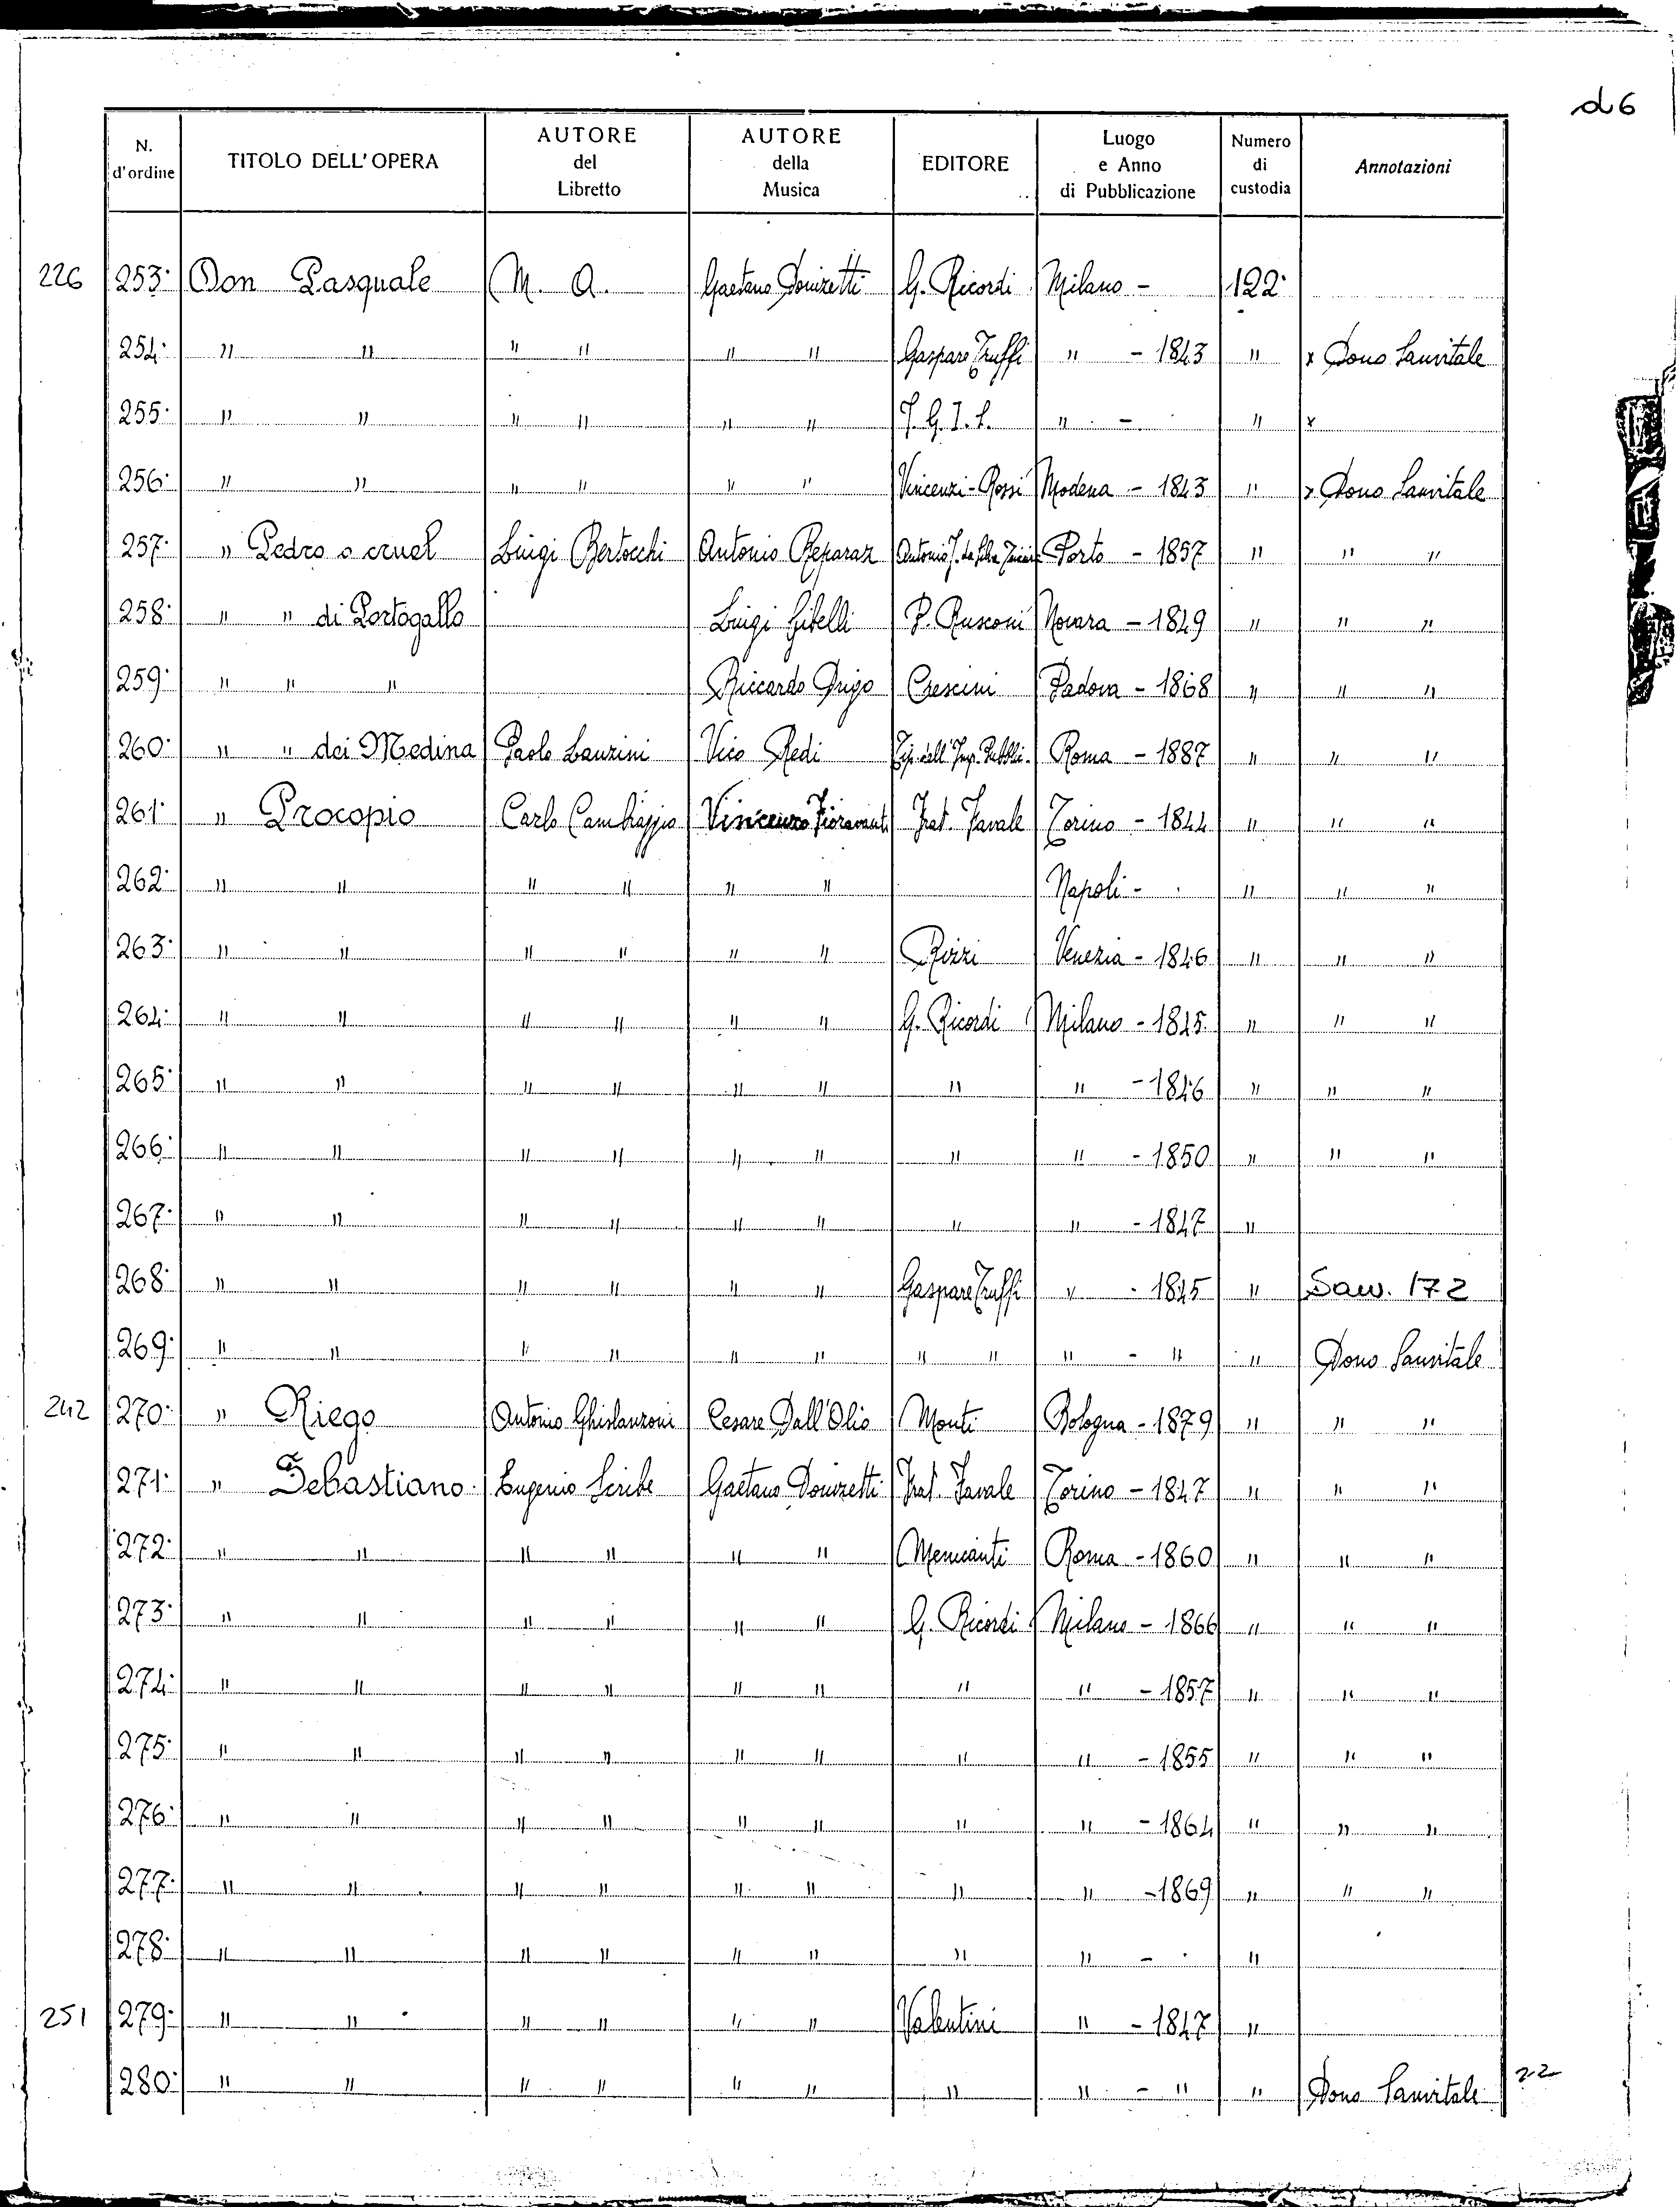 d6
N. d'ordine TITOLO DELL'OPERA AUTORE del Libretto AUTORE della Musica EDITORE Luogo e Anno di Pubblicazione Numero di custodia Annotazioni
226 253. Don Pasquale M. A. Gaetano Donizetti G. Ricordi Milano - 122.
254. " " " " " " Gaspare Truffi " - 1843 " x Dono Sanvitale
255. " " " " " " T. G. I. L. " - " x
256. " " " " " " Vincenzi-Rossi Modena - 1843 " x Dono Sanvitale
257. " Pedro o cruel Luigi Bertocchi Antonio Reparaz Antonio J. da Silva Porto - 1857 " " "
258. " " di Portogallo Luigi Gibelli P. Rusconi Novara - 1849 " " "
259. " " " Riccardo Drigo Crescini Padova - 1868 " " "
260. " " dei Medina Paolo Lanzini Vico Redi Tip. dell'Imp. Pubbli. Roma - 1887 " " "
261. " Procopio Carlo Cambiaggio Vincenzo Fioravanti Frat. Favale Torino - 1844 " " "
262. " " " " " " Napoli - " " "
263. " " " " " " Rizzi Venezia - 1846 " " "
264. " " " " " " G. Ricordi Milano - 1845 " " "
265. " " " " " " " " - 1846 " " "
266. " " " " " " " " - 1850 " " "
267. " " " " " " " " - 1847 "
268. " " " " " " Gaspare Truffi " - 1845 " Sanv. 172
269. " " " " " " " " " - " " Dono Sanvitale
242 270. " Riego Antonio Ghislanzoni Cesare Dall'Olio Monti Bologna - 1879 " " "
271. " Sebastiano. Eugenio Scribe Gaetano Donizetti Frat. Favale Torino - 1847 " " "
272. " " " " " " Menicanti Roma - 1860 " " "
273. " " " " " " G. Ricordi Milano - 1866 " " "
274. " " " " " " " " - 1857 " " "
275. " " " " " " " " - 1855 " " "
276. " " " " " " " " - 1864 " " "
277. " " " " " " " " - 1869 " " "
278. " " " " " " " " - "
251 279. " " " " " " Valentini " - 1847 "
280. " " " " " " " " - " " Dono Sanvitale 22